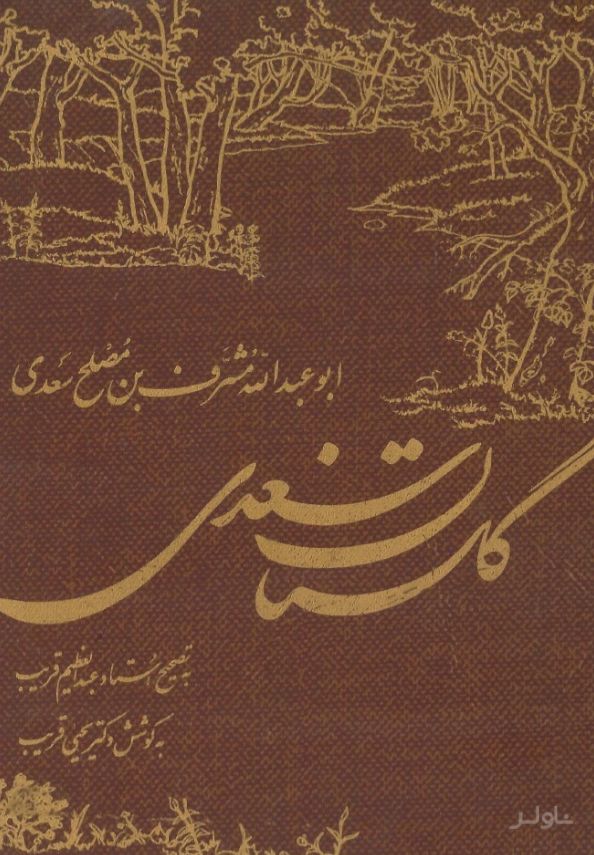 ابو عبدالله مُشرَّف بن مُصلح سَعدی
گلستان سعدی
به تصحیح استاد عبدالعظیم قریب
به کوشش دکتر یحیی قریب
ناولر